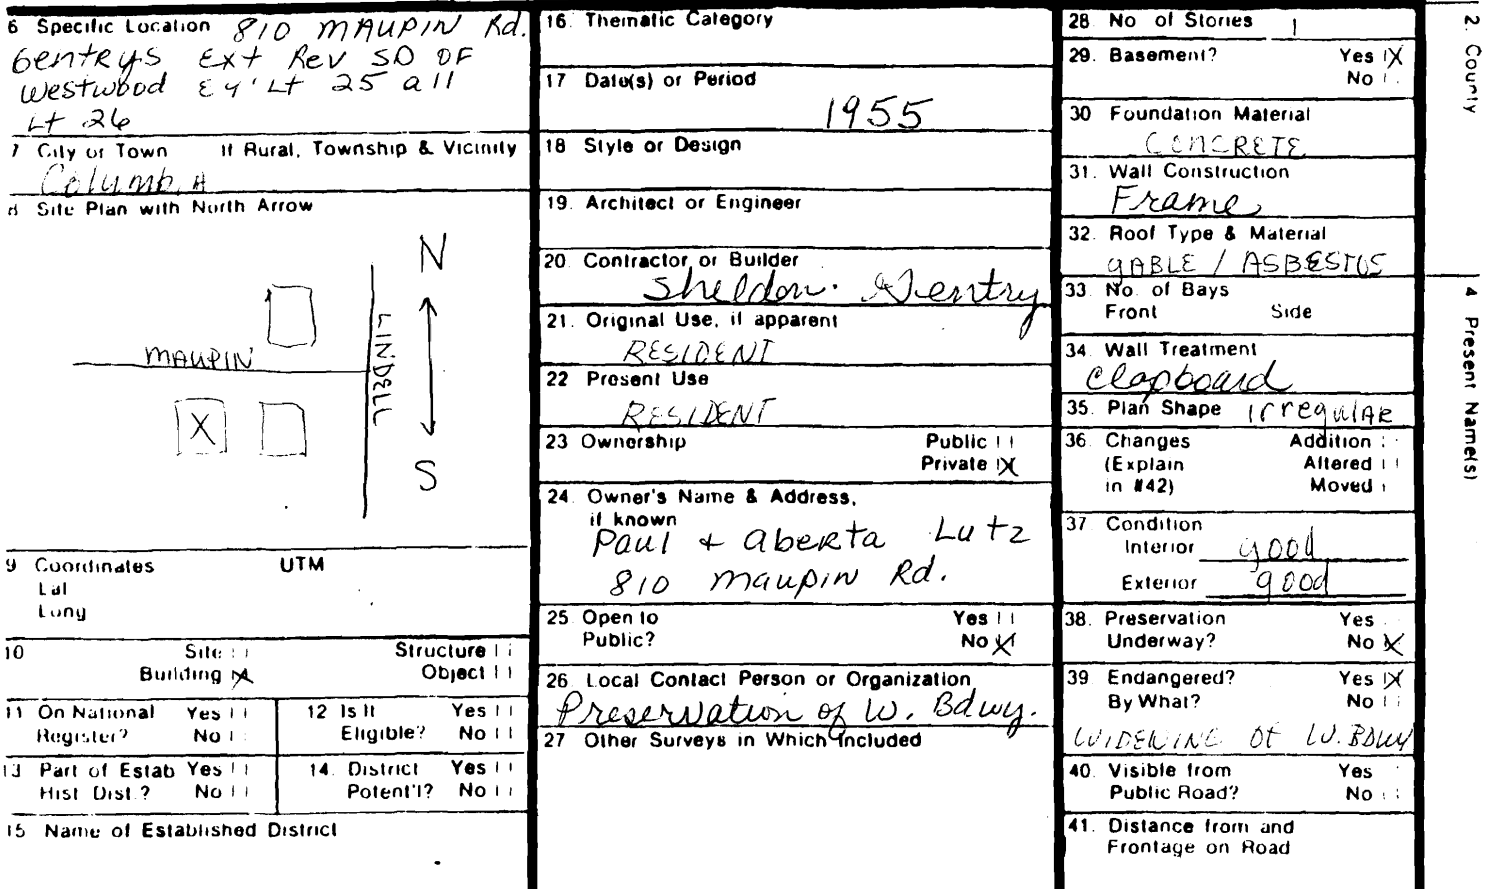 6 Specific Location 810 MAUPIN Rd.
Gentrys Ext Rev SD OF
Westwood Ey' Lt 25 all
Lt 26
7 City or Town If Rural, Township & Vicinity
Columbia
8 Site Plan with North Arrow
N
MAUPIN
LINDELL
X
S
9 Coordinates UTM
Lat
Long
10 Site
Structure
Building X
Object
11 On National Register? Yes No
12 Is It Eligible? Yes No
13 Part of Estab Hist Dist.? Yes No
14. District Potent'l? Yes No
15 Name of Established District
16. Thematic Category
17 Date(s) or Period
1955
18 Style or Design
19. Architect or Engineer
20. Contractor or Builder
Sheldon Gentry
21. Original Use, if apparent
RESIDENT
22 Present Use
RESIDENT
23 Ownership Public
Private X
24. Owner's Name & Address,
if known
Paul + Aberta Lutz
810 Maupin Rd.
25. Open to Yes
Public? No X
26 Local Contact Person or Organization
Preservation of W. Bdwy.
27 Other Surveys in Which Included
28. No of Stories 1
29. Basement? Yes X
No
30 Foundation Material
CONCRETE
31. Wall Construction
Frame
32. Roof Type & Material
GABLE / ASBESTOS
33. No. of Bays
Front Side
34. Wall Treatment
Clapboard
35. Plan Shape Irregular
36. Changes Addition
(Explain Altered
in #42) Moved
37 Condition
Interior good
Exterior good
38. Preservation Yes
Underway? No X
39. Endangered? Yes X
By What? No
WIDENING OF W. BDWY
40. Visible from Yes
Public Road? No
41. Distance from and
Frontage on Road
2. County
4 Present Name(s)